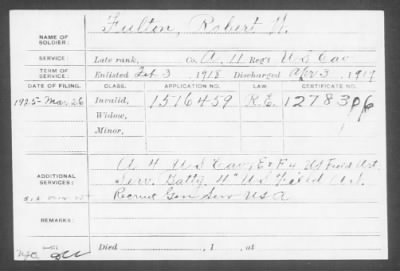 NAME OF SOLDIER: Fulton, Robert N.
SERVICE: Late rank, Co. A, 11 Reg't U.S. Cav
TERM OF SERVICE: Enlisted Feb 3, 1912 Discharged Apr 3, 1919
DATE OF FILING. CLASS. APPLICATION NO. LAW. CERTIFICATE NO.
1925-Mar. 26 Invalid, 1516459 R.E. 12783
Widow,
Minor,
ADDITIONAL SERVICES: A 4 U.S. Cav, E & F 4 US Field Art.
Serv. Batty 4" US Field Art.
Recruit Gen Serv USA
REMARKS:
Died , 1 , at